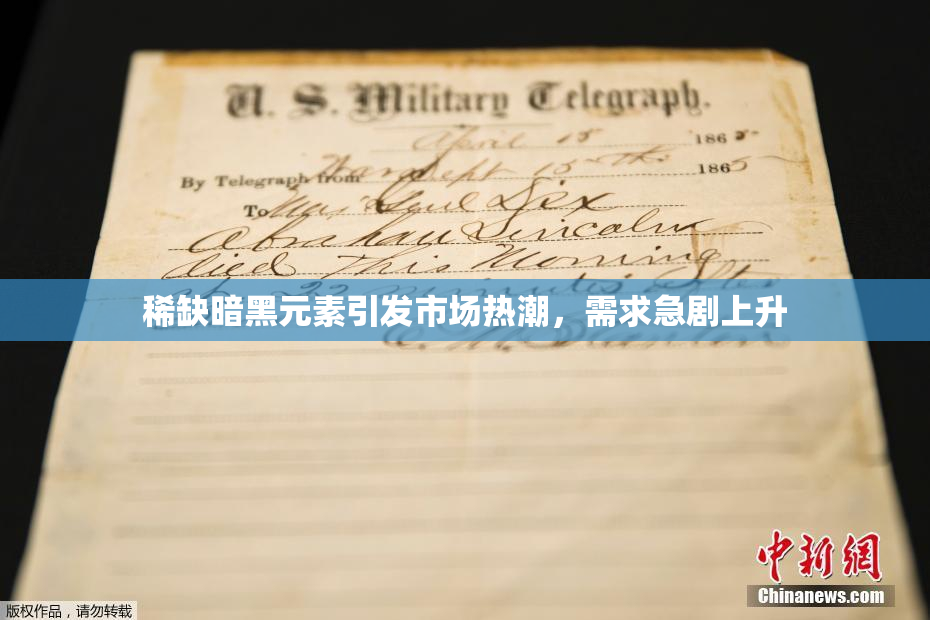 U. S. Military Telegraph.
April 15 1865-
By Telegraph from War Dept 15th 1865
To Maj Genl Dix
Abraham Lincoln
died This Morning
22 minutes after
稀缺暗黑元素引发市场热潮，需求急剧上升
E. M. Stanton
中新网
Chinanews.com
版权作品，请勿转载